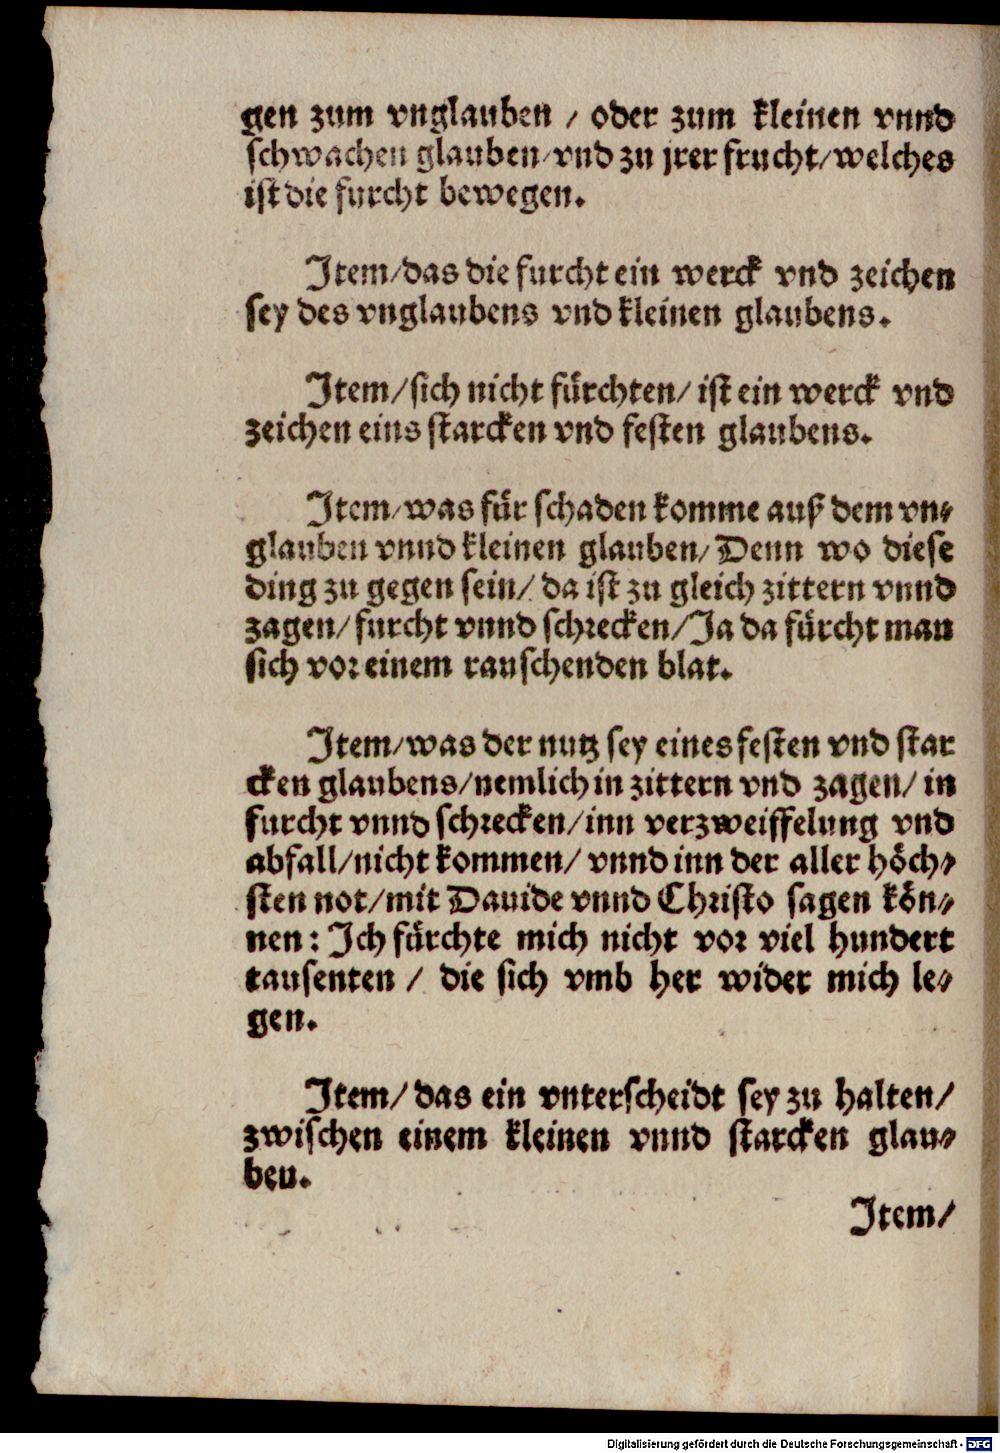 gen zum vnglauben / oder zum kleinen vnnd
schwachen glauben/vnd zu jrer frucht/welches
ist die furcht bewegen.
Item/das die furcht ein werck vnd zeichen
sey des vnglaubens vnd kleinen glaubens.
Item/sich nicht fürchten/ist ein werck vnd
zeichen eins starcken vnd festen glaubens.
Item/was für schaden komme auß dem vn-
glauben vnnd kleinen glauben/Denn wo diese
ding zu gegen sein/da ist zu gleich zittern vnnd
zagen/furcht vnnd schrecken/Ja da fürcht man
sich vor einem rauschenden blat.
Item/was der nutz sey eines festen vnd star
cken glaubens/nemlich in zittern vnd zagen/in
furcht vnnd schrecken/inn verzweiffelung vnd
abfall/nicht kommen/vnnd inn der aller höch-
sten not/mit Dauide vnnd Christo sagen kön-
nen: Ich fürchte mich nicht vor viel hundert
tausenten / die sich vmb her wider mich le-
gen.
Item/das ein vnterscheidt sey zu halten/
zwischen einem kleinen vnnd starcken glau-
ben.
Item/
Digitalisierung gefördert durch die Deutsche Forschungsgemeinschaft - DFG